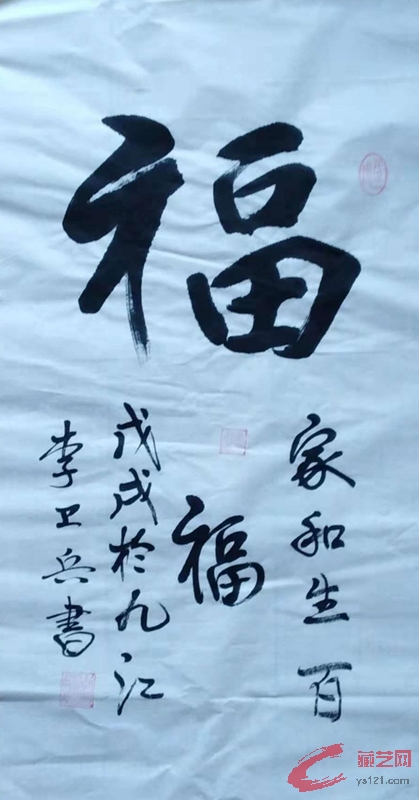 福
家和生百
福
戊戌於九江
李卫兵書
藏艺网
ys121.com